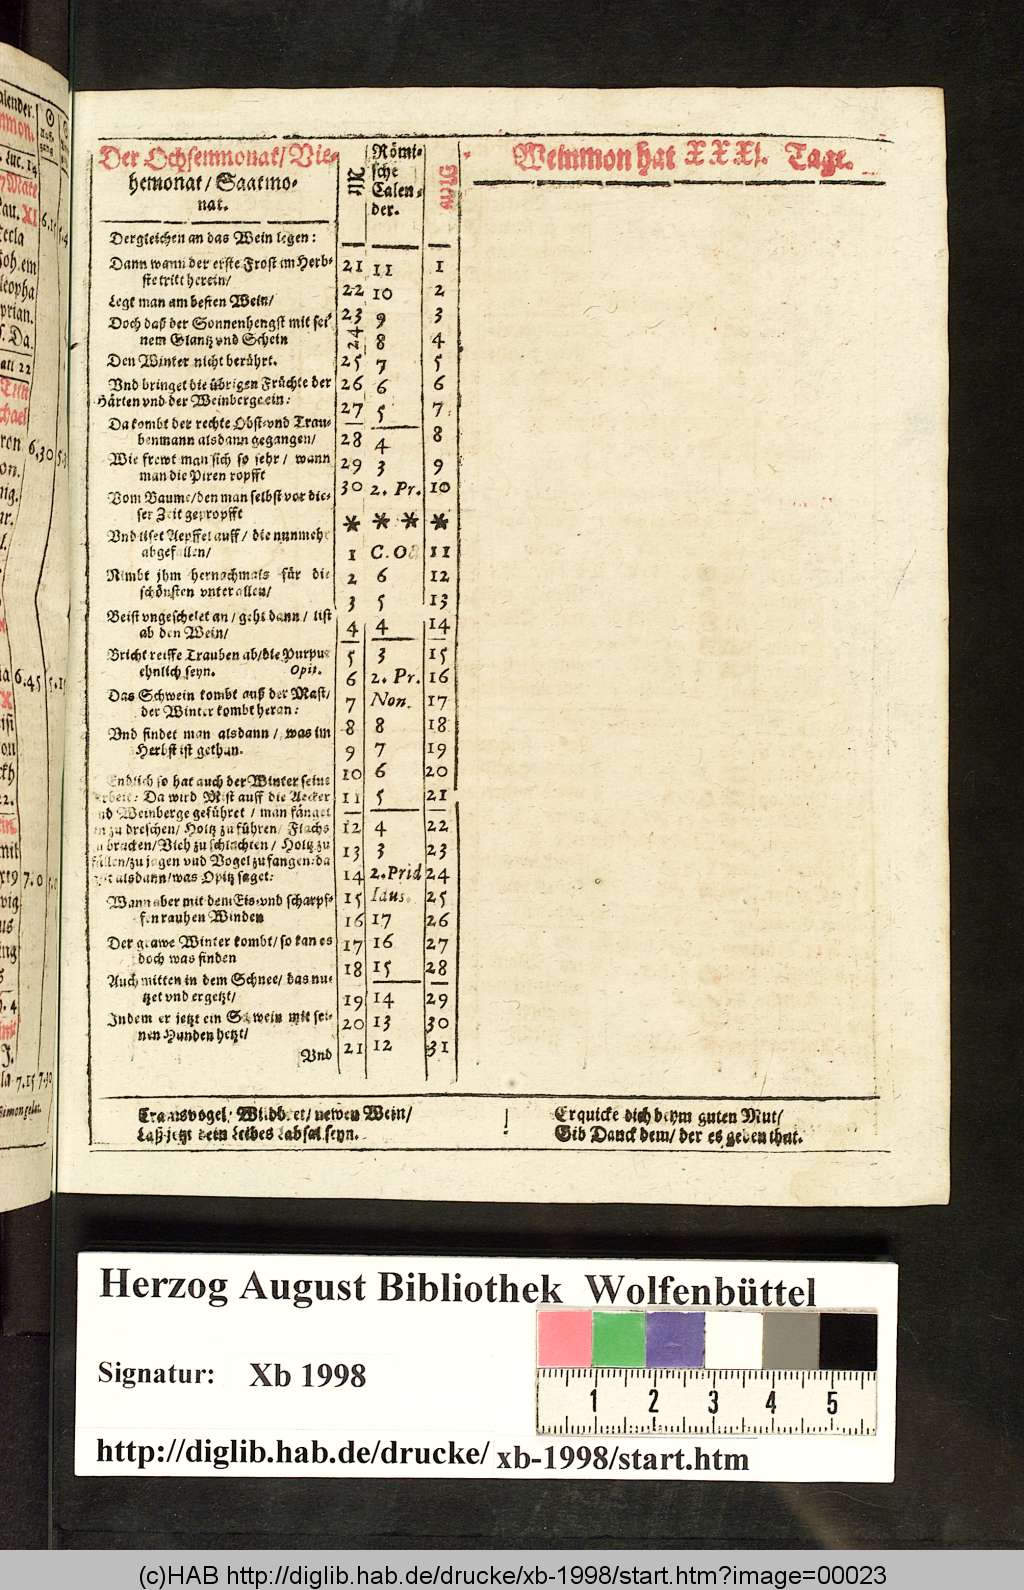 Der Ochsenmonat/ Vie-
hemonat/ Saatmo-
nat.
Dergleichen an das Wein legen:
Dann wann der erste Frost im Herb-
ste tritt herein/
Legt man am besten Wein/
Doch daß der Sonnenhengst mit sei-
nem Glantz vnd Schein
Den Winter nicht berührt.
Vnd bringet die übrigen Früchte der
Gärten vnd der Weinberge ein:
Da kombt der rechte Obst-vnd Trau-
benmann alsdann gegangen/
Wie frewt man sich so sehr/ wann
man die Piren ropfft
Vom Baume/ den man selbst vor die-
ser Zeit gepropfft
Vnd liset Aepffel auff/ die nunmehr
abgefallen/
Nimbt jhm hernachmals für die
schönsten vnter allen/
Beist vngeschelet an/ geht dann/ list
ab den Wein/
Bricht reiffe Trauben ab/ die Purpur
ehnlich seyn. Opit.
Das Schwein kombt auß der Mast/
der Winter kombt heran:
Vnd findet man alsdann/ was im
Herbst ist gethan.
Endlich so hat auch der Winter seine
Arbeit: Da wird Mist auff die Aecker
vnd Weinberge geführet/ man fänget
an zu dreschen/ Holtz zu führen/ Flachs
zu bracken/ Vieh zu schlachten/ Holtz zu
fällen/ zu jagen vnd Vogel zu fangen: da
alsdann/ was Opitz saget:
Wann aber mit dem Eis-vnd scharpf-
fen rauhen Winden
Der grawe Winter kombt/ so kan es
doch was finden
Auch mitten in dem Schnee/ das nu-
tzet vnd ergetzt/
Indem er jetzt ein Schwein mit sei-
nen Hunden hetzt/
Vnd
Alt
Römi-
sche
Calen-
der.
New
21 11 1
22 10 2
23 9 3
24 8 4
25 7 5
26 6 6
27 5 7
28 4 8
29 3 9
30 2. Pr. 10
* * * *
1 C. O8 11
2 6 12
3 5 13
4 4 14
5 3 15
6 2. Pr. 16
7 Non. 17
8 8 18
9 7 19
10 6 20
11 5 21
12 4 22
13 3 23
14 2. Prid 24
15 Idus. 25
16 17 26
17 16 27
18 15 28
19 14 29
20 13 30
21 12 31
Weinmon hat XXXI. Tage.
Cramsvogel/ Wildbret/ newen Wein/
Laß jetzt dein Leibes Labsal seyn.
Erquicke dich beym guten Mut/
Gib Danck dem/ der es geben thut.
Herzog August Bibliothek Wolfenbüttel
Signatur: Xb 1998
1 2 3 4 5
http://diglib.hab.de/drucke/ xb-1998/start.htm
(c)HAB http://diglib.hab.de/drucke/xb-1998/start.htm?image=00023